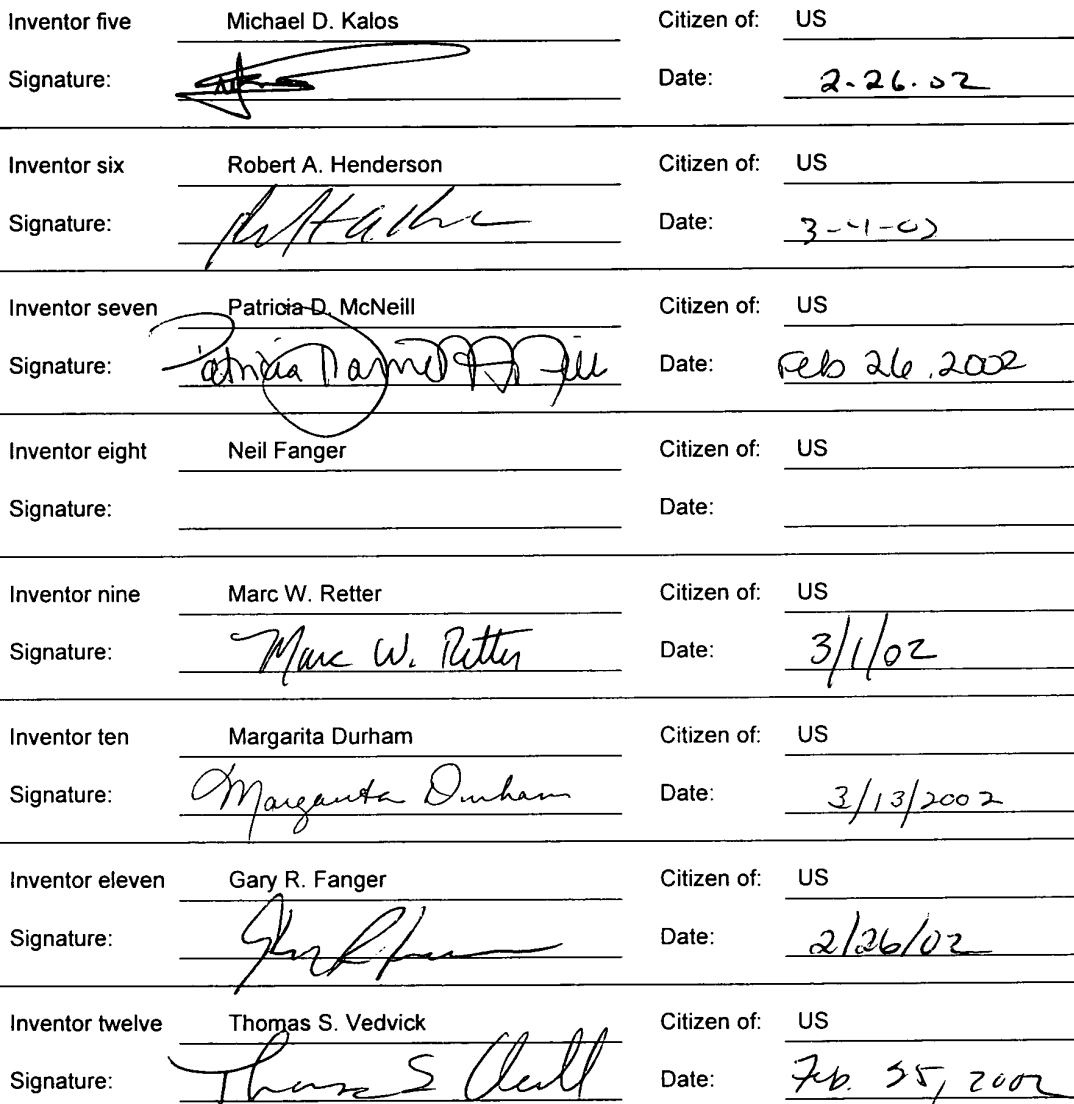 Inventor five Michael D. Kalos Citizen of: US
Signature: Date: 2-26-02
Inventor six Robert A. Henderson Citizen of: US
Signature: Date:
Inventor seven Patricia D. McNeill Citizen of: US
Signature: Patricia Date: Feb 26, 2002
Inventor eight Neil Fanger Citizen of: US
Signature: Date:
Inventor nine Marc W. Retter Citizen of: US
Signature: Marc W. Retter Date: 3/1/02
Inventor ten Margarita Durham Citizen of: US
Signature: Margarita Durham Date: 3/13/2002
Inventor eleven Gary R. Fanger Citizen of: US
Signature: Date: 2/26/02
Inventor twelve Thomas S. Vedvick Citizen of: US
Signature: Thomas S Date: Feb. 25, 2002